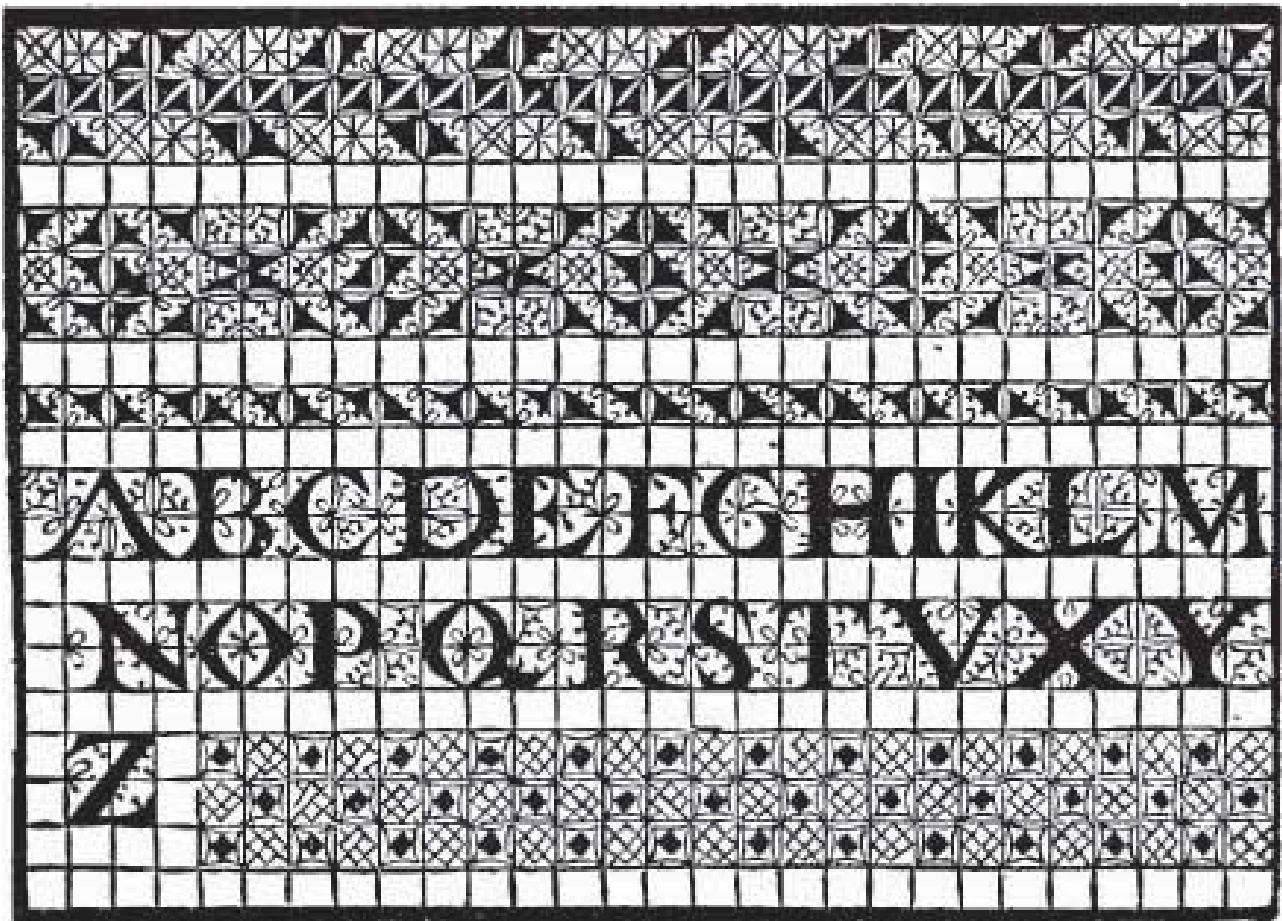 ABCDEFGHIKLM
NOPQRSTVXY
Z